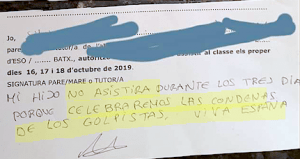 Jo,
pare/
d'ESO / ..... BATX., autoritz al classe els propers
dies 16, 17 i 18 d'octubre de 2019.
SIGNATURA PARE/MARE o TUTOR/A
MI HIJO NO ASISTIRA DURANTE LOS TRES DIA
PORQUE CELEBRAREMOS LAS CONDENAS
DE LOS GOLPISTAS, VIVA ESPAÑA